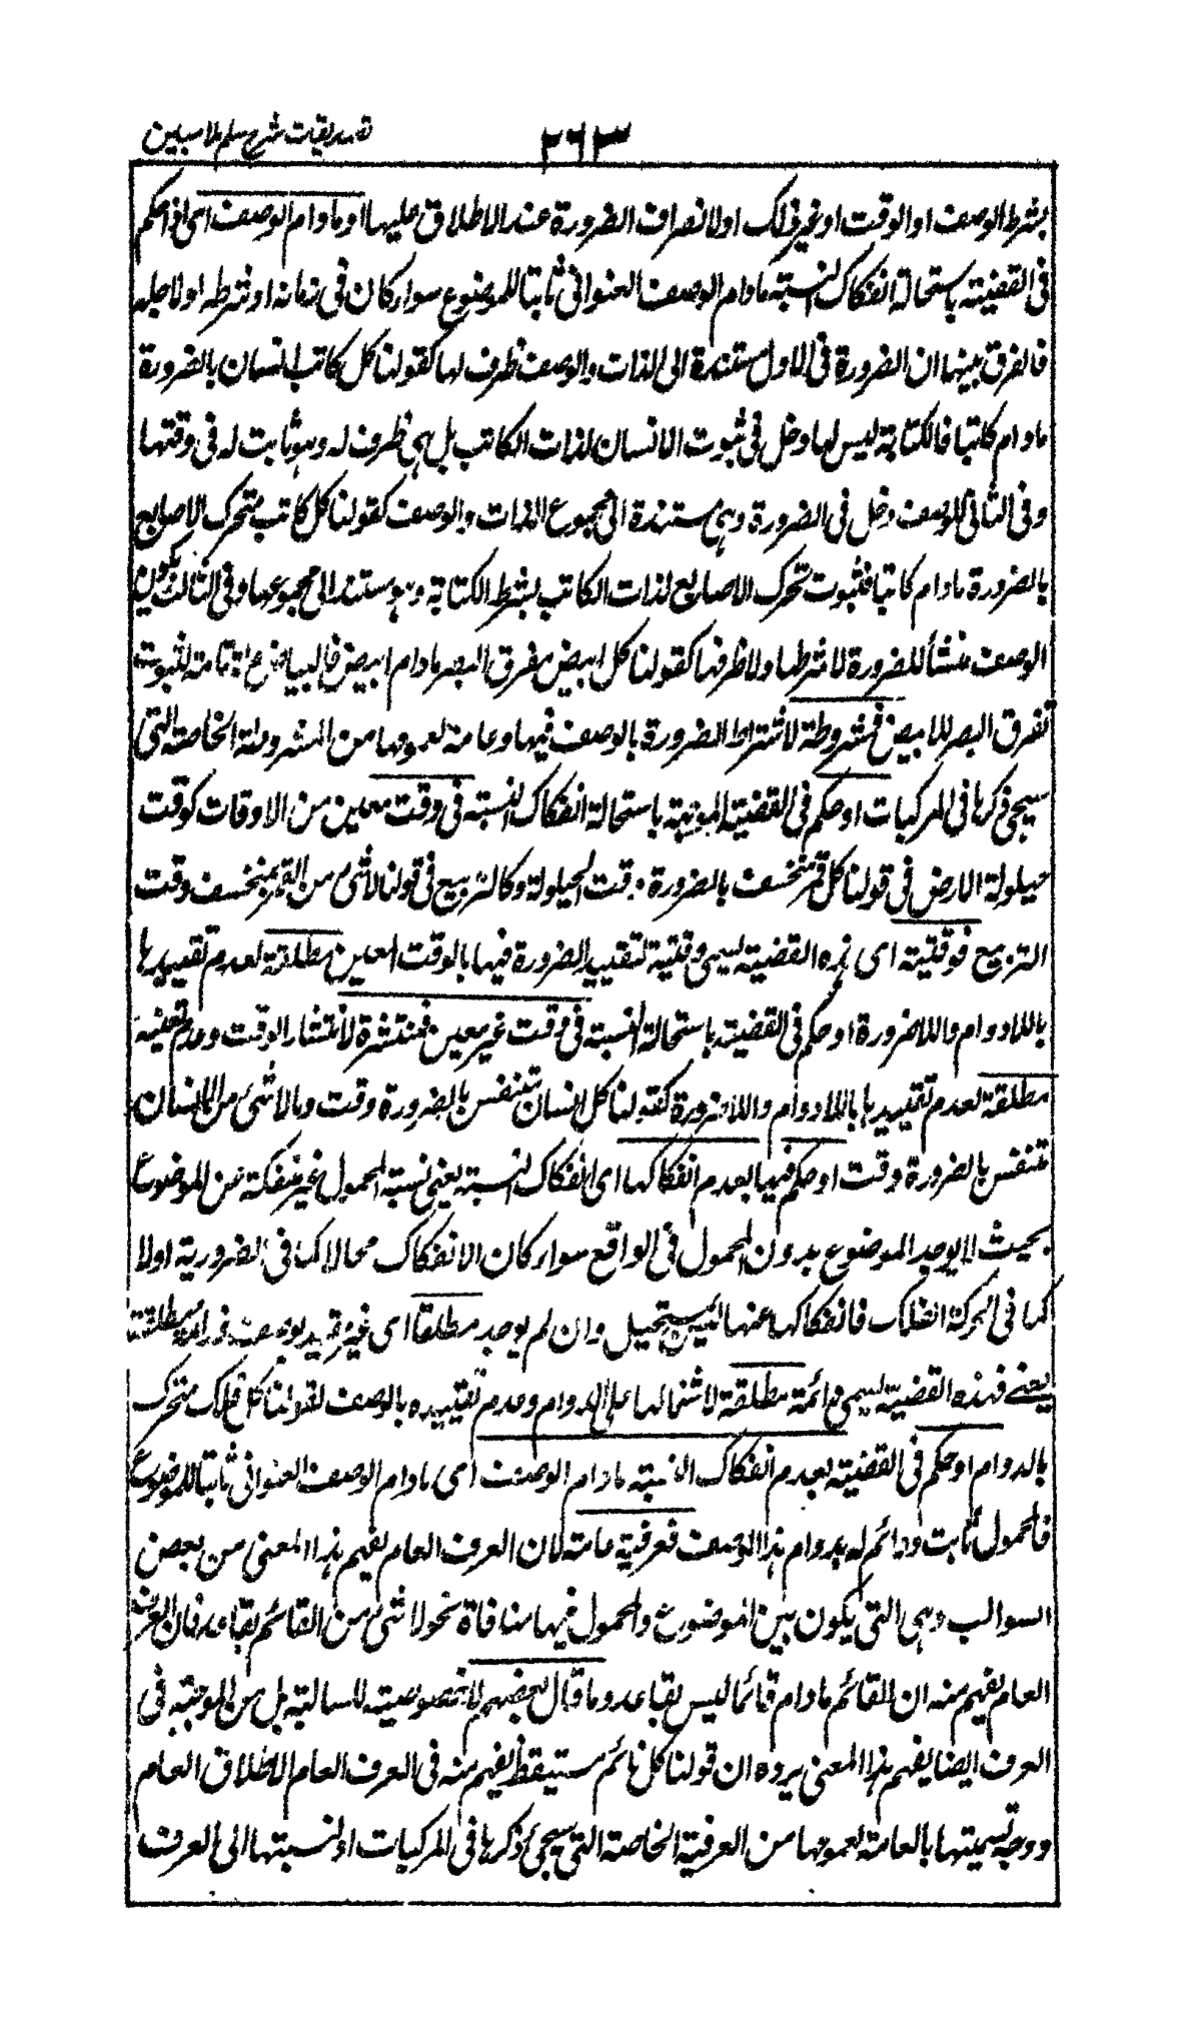 ٢٦٣
تصديقات شرح سلم ملا مبين
بشرط الوصف او الوقت او غير ذلك اولا نصراف الضرورة عند الاطلاق عليها او مادام الوصف اى ان حكم
فى القضية باستحالة انفكاك النسبة مادام الوصف العنوانى ثابتا للموضوع سواء كان فى زمانه او بشرطه او لاجله
فالفرق بينها ان الضرورة فى الاول مستندة الى الذات والوصف ظرف لها كقولنا كل كاتب انسان بالضرورة
مادام كاتبا فالكتابة ليس لها دخل فى ثبوت الانسان لذات الكاتب بل هى ظرف له وهو ثابت له فى وقتها
وفى الثانى للوصف دخل فى الضرورة وهى مستندة الى مجموع الذات والوصف كقولنا كل كاتب متحرك الاصابع
بالضرورة مادام كاتبا فثبوت تحرك الاصابع لذات الكاتب بشرط الكتابة وهو مستند الى مجموعهما وفى الثالث يكون
الوصف منشأ للضرورة لا شرطها ولا ظرفها كقولنا كل ابيض مفرق البصر مادام ابيض فالبياض علة تامة لثبوت
تفرق البصر للابيض فمشروطة لاشتراط الضرورة بالوصف فيها وعامة لعمومها من المشروطة الخاصة التى
سيجئ ذكرها فى المركبات او حكم فى القضية الموجهة باستحالة انفكاك النسبة فى وقت معين من الاوقات كوقت
حيلولة الارض فى قولنا كل قمر منخسف بالضرورة وقت الحيلولة وكالتربيع فى قولنا لا شئ من القمر بمنخسف وقت
التربيع فوقتية اى هذه القضية تسمى وقتية لتقييد الضرورة فيها بالوقت المعين مطلقة لعدم تقييدها
باللادوام واللاضرورة او حكم فى القضية باستحالة النسبة فى وقت غير معين فمنتشرة لانتشار الوقت وعدم تعينه
مطلقة لعدم تقييدها باللادوام واللاضرورة كقولنا كل انسان متنفس بالضرورة وقت ما ولا شئ من الانسان
متنفس بالضرورة وقت او حكم فيها بعدم انفكاكها اى انفكاك النسبة يعنى نسبة المحمول غير منفكة عن الموضوع
بحيث لا يوجد الموضوع بدون المحمول فى الواقع سواء كان الانفكاك محالا كما فى الضرورية اولا
كما فى الحركة الفلك فانفكاكها عنها ليس بمستحيل وان لم يوجد مطلقا اى غير قيد بوصف فدائمة مطلقة
يعنى فهذه القضية تسمى دائمة مطلقة لاشتمالها على الدوام وعدم تقييده بالوصف كقولنا كل فلك متحرك
بالدوام او حكم فى القضية بعدم انفكاك النسبة مادام الوصف اى مادام الوصف العنوانى ثابتا للموضوع
فالمحمول ثابت ودائم له بدوام هذا الوصف فعرفية عامة لان العرف العام يفهم هذا المعنى من بعض
السوالب وهى التى يكون بين الموضوع والمحمول فيها منافاة نحو لا شئ من القائم بقاعد فان العرف
العام يفهم منه ان القائم مادام قائما ليس بقاعد وما قال بعضهم لا خصوصية للسالبة بل من الموجبة فى
العرف ايضا يفهم هذا المعنى يرده ان قولنا كل نائم مستيقظ يفهم منه فى العرف العام الاطلاق العام
ووجه تسميتها بالعامة لعمومها من العرفية الخاصة التى سيجئ ذكرها فى المركبات او لنسبتها الى العرف